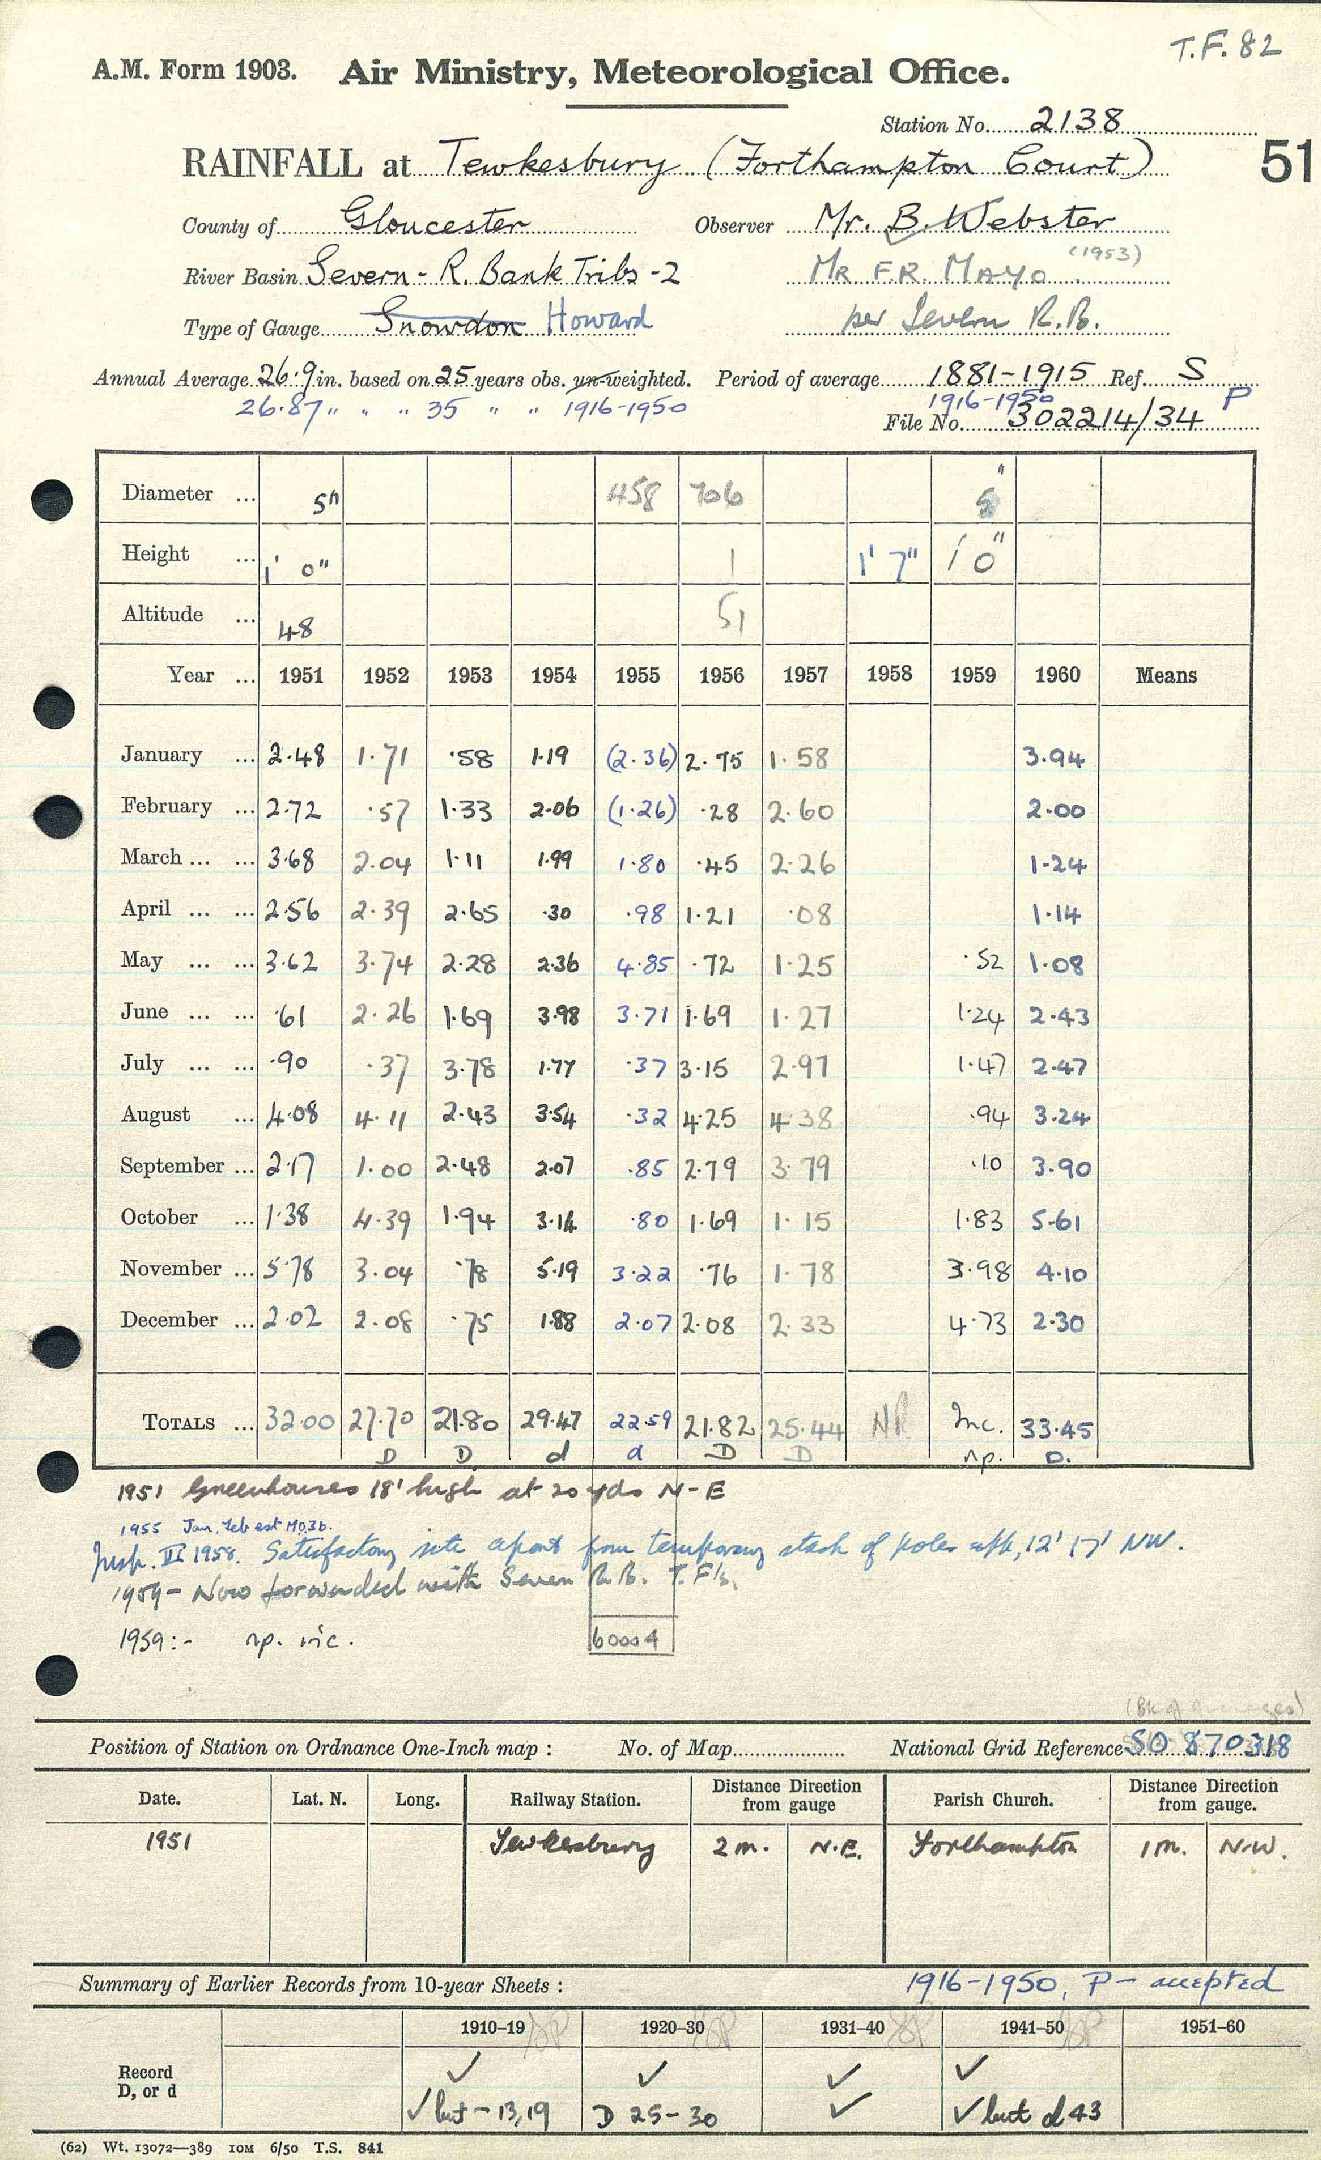 T.F. 82
A.M. Form 1903. Air Ministry, Meteorological Office.
Station No. 2138
RAINFALL at Tewkesbury (Forthampton Court) 51
County of Gloucester Observer Mr. B. Webster
River Basin Severn - R. Bank Tribs - 2 MR F.R. MAYO (1953)
Type of Gauge Snowdon Howard per Severn R.B.
Annual Average 26.9 in. based on 25 years obs. un-weighted. Period of average 1881-1915 Ref. S
26.87 " " " 35 " " 1916-1950 1916-1950 P
File No. 302214/34
Diameter ... 5" 458 706 5"
Height ... 1' 0" 1 1' 7" 1' 0"
Altitude ... 48 51
Year ... 1951 1952 1953 1954 1955 1956 1957 1958 1959 1960 Means
January ... 2.48 1.71 .58 1.19 (2.36) 2.75 1.58 3.94
February ... 2.72 .57 1.33 2.06 (1.26) .28 2.60 2.00
March ... ... 3.68 2.04 1.11 1.99 1.80 .45 2.26 1.24
April ... ... 2.56 2.39 2.65 .30 .98 1.21 .08 1.14
May ... ... 3.62 3.74 2.28 2.36 4.85 .72 1.25 .52 1.08
June ... ... .61 2.26 1.69 3.98 3.71 1.69 1.27 1.24 2.43
July ... ... .90 .37 3.78 1.77 .37 3.15 2.97 1.47 2.47
August ... 4.08 4.11 2.43 3.54 .32 4.25 4.38 .94 3.24
September ... 2.17 1.00 2.48 2.07 .85 2.79 3.79 .10 3.90
October ... 1.38 4.39 1.94 3.14 .80 1.69 1.15 1.83 5.61
November ... 5.78 3.04 .78 5.19 3.22 .76 1.78 3.98 4.10
December ... 2.02 2.08 .75 1.88 2.07 2.08 2.33 4.73 2.30
TOTALS ... 32.00 27.70 21.80 29.47 22.59 21.82 25.44 NR Inc. 33.45
D D d d D D np. D.
1951 Greenhouses 18' high at 20 yds N-E
1955 Jan. Feb est M.O.3b.
Insp. III 1958. Satisfactory site apart from temporary stack of poles 12' 17' NW.
1959 - Now forwarded with Severn R.B. T.F's.
1959:- np. inc. 60004
Position of Station on Ordnance One-Inch map : No. of Map National Grid Reference SO 870318
Date. Lat. N. Long. Railway Station. Distance Direction from gauge Parish Church. Distance Direction from gauge.
1951 Tewkesbury 2 m. N.E. Forthampton 1 m. N.W.
Summary of Earlier Records from 10-year Sheets : 1916-1950, P - accepted
1910-19 1920-30 1931-40 1941-50 1951-60
Record ✓ ✓ ✓ ✓
D, or d ✓ but - 13,19 D 25-30 ✓ ✓ but d 43
(62) Wt. 13072—389 10M 6/50 T.S. 841